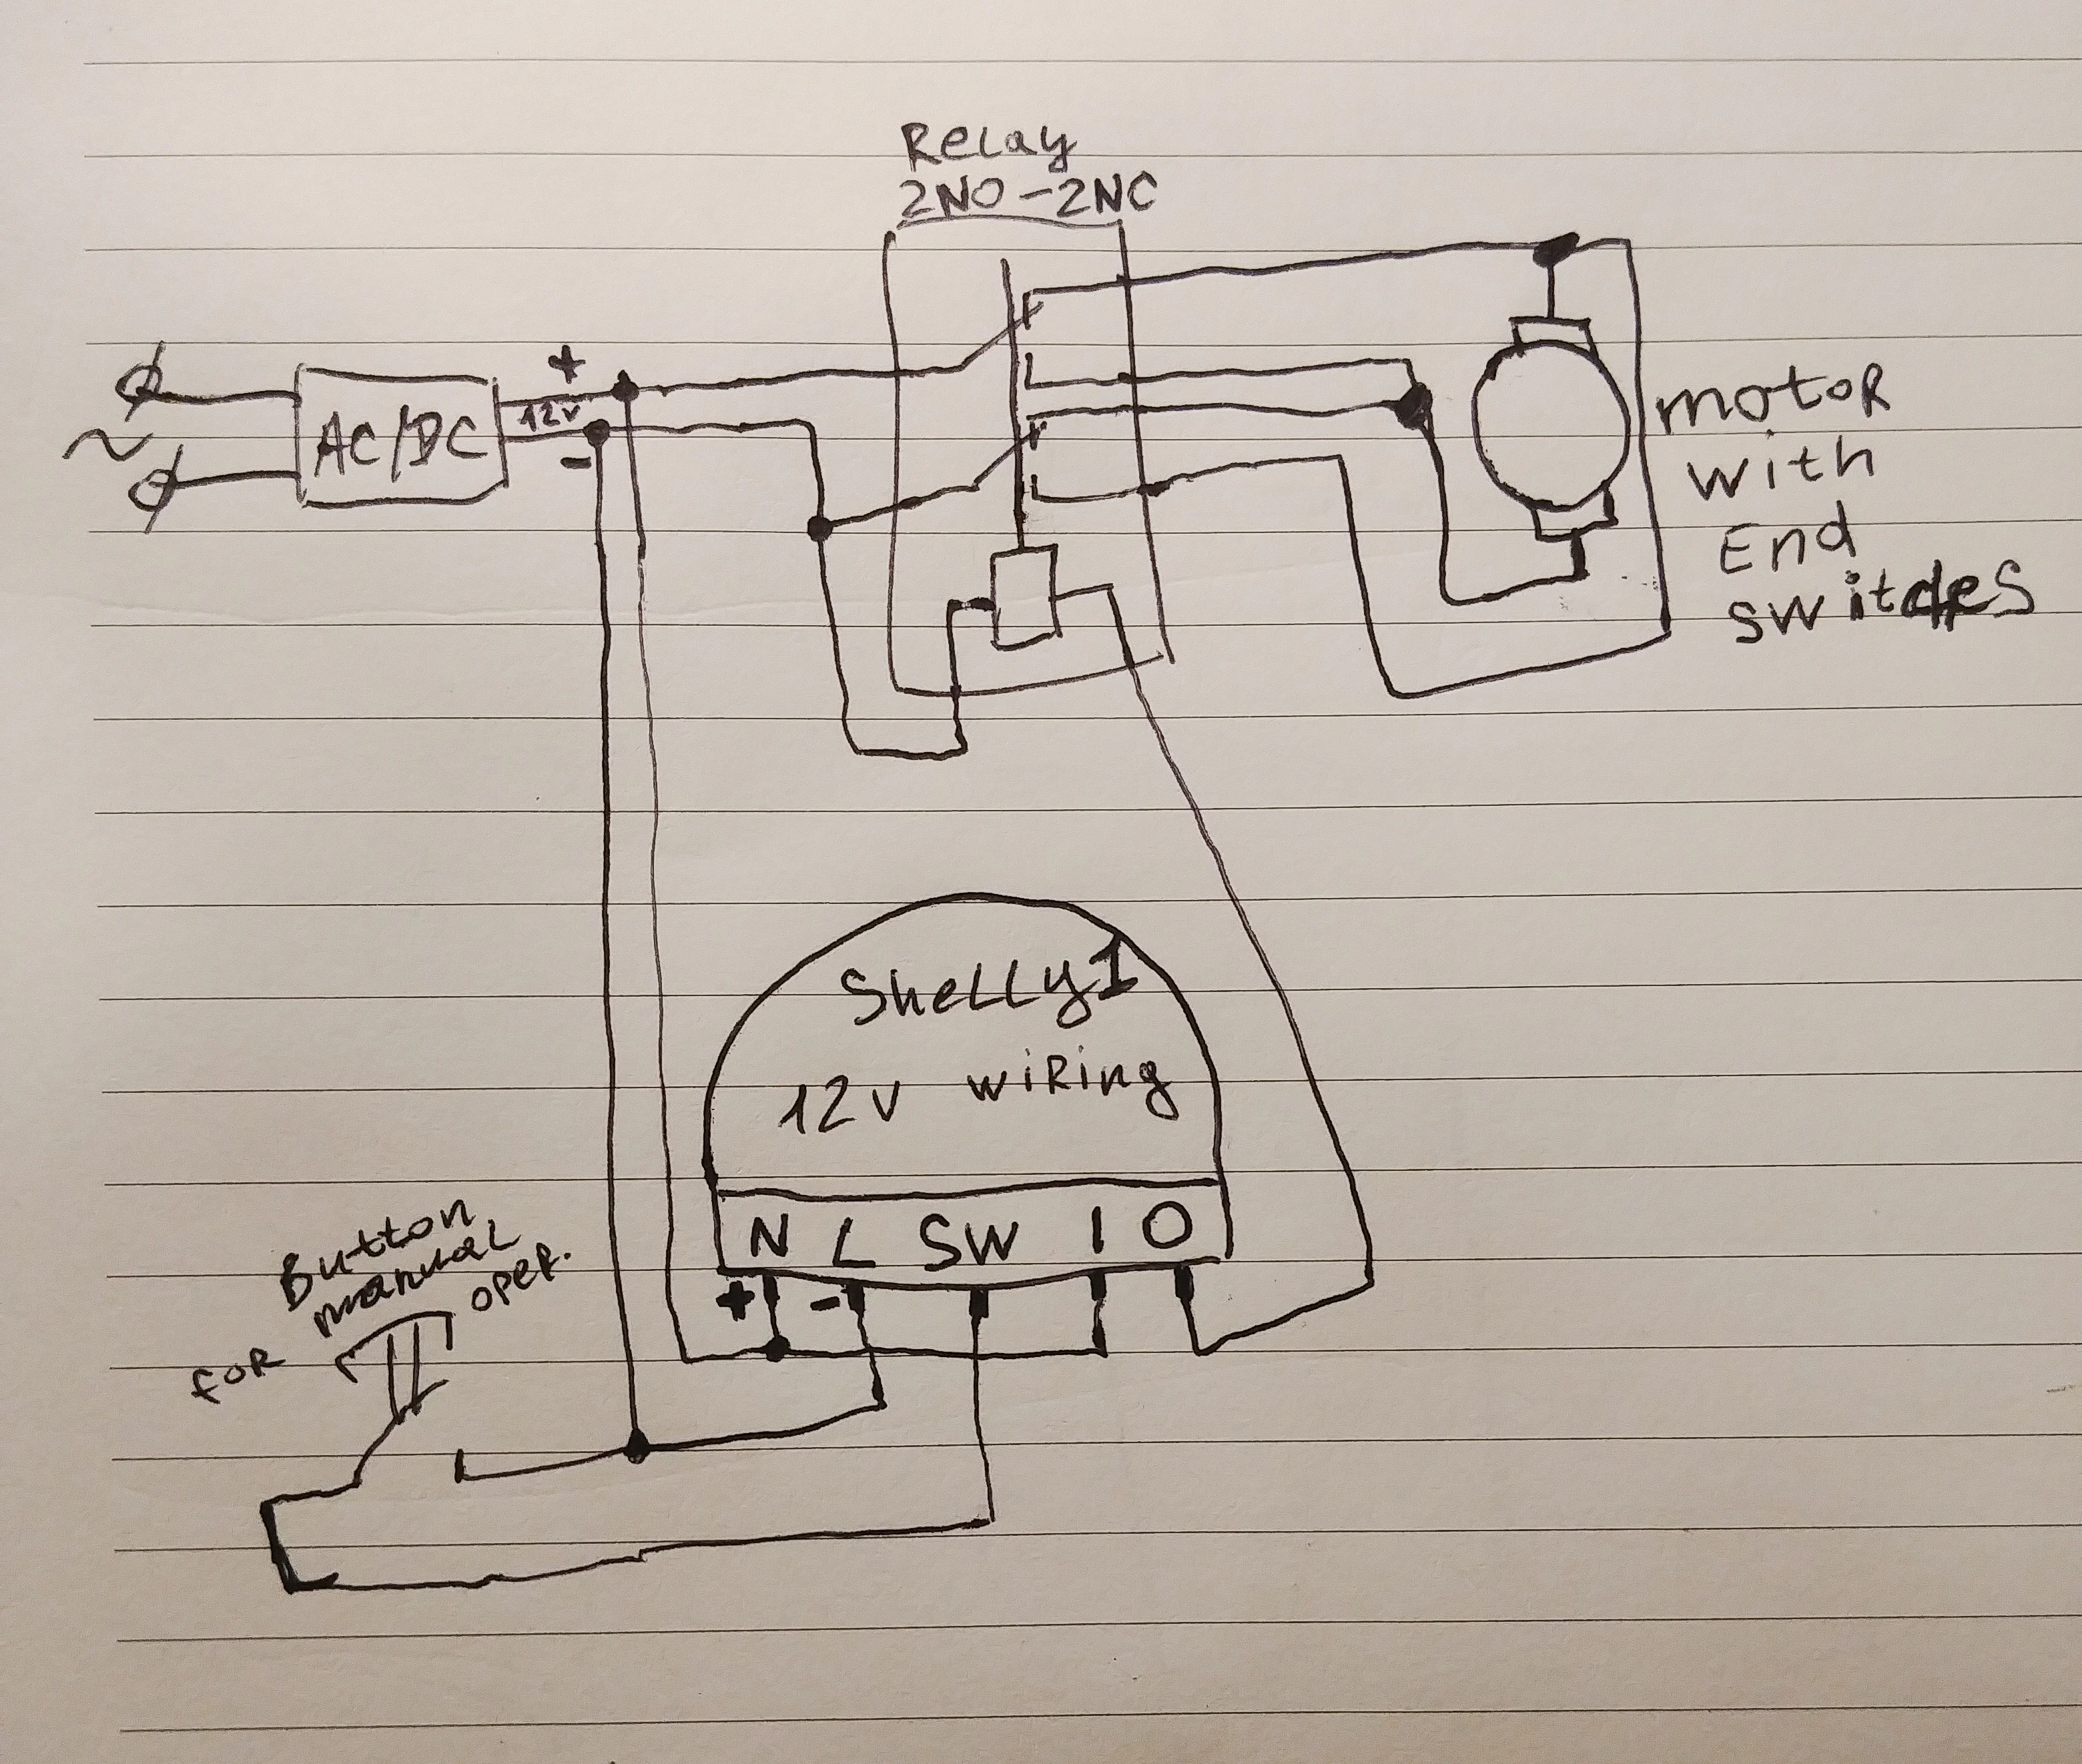 Relay
2NO-2NC
+
12v
-
~
AC/DC
motoR
with
End
switches
Shelly1
12v wiRing
N L SW I O
+ -
Button
manual
oper.
foR